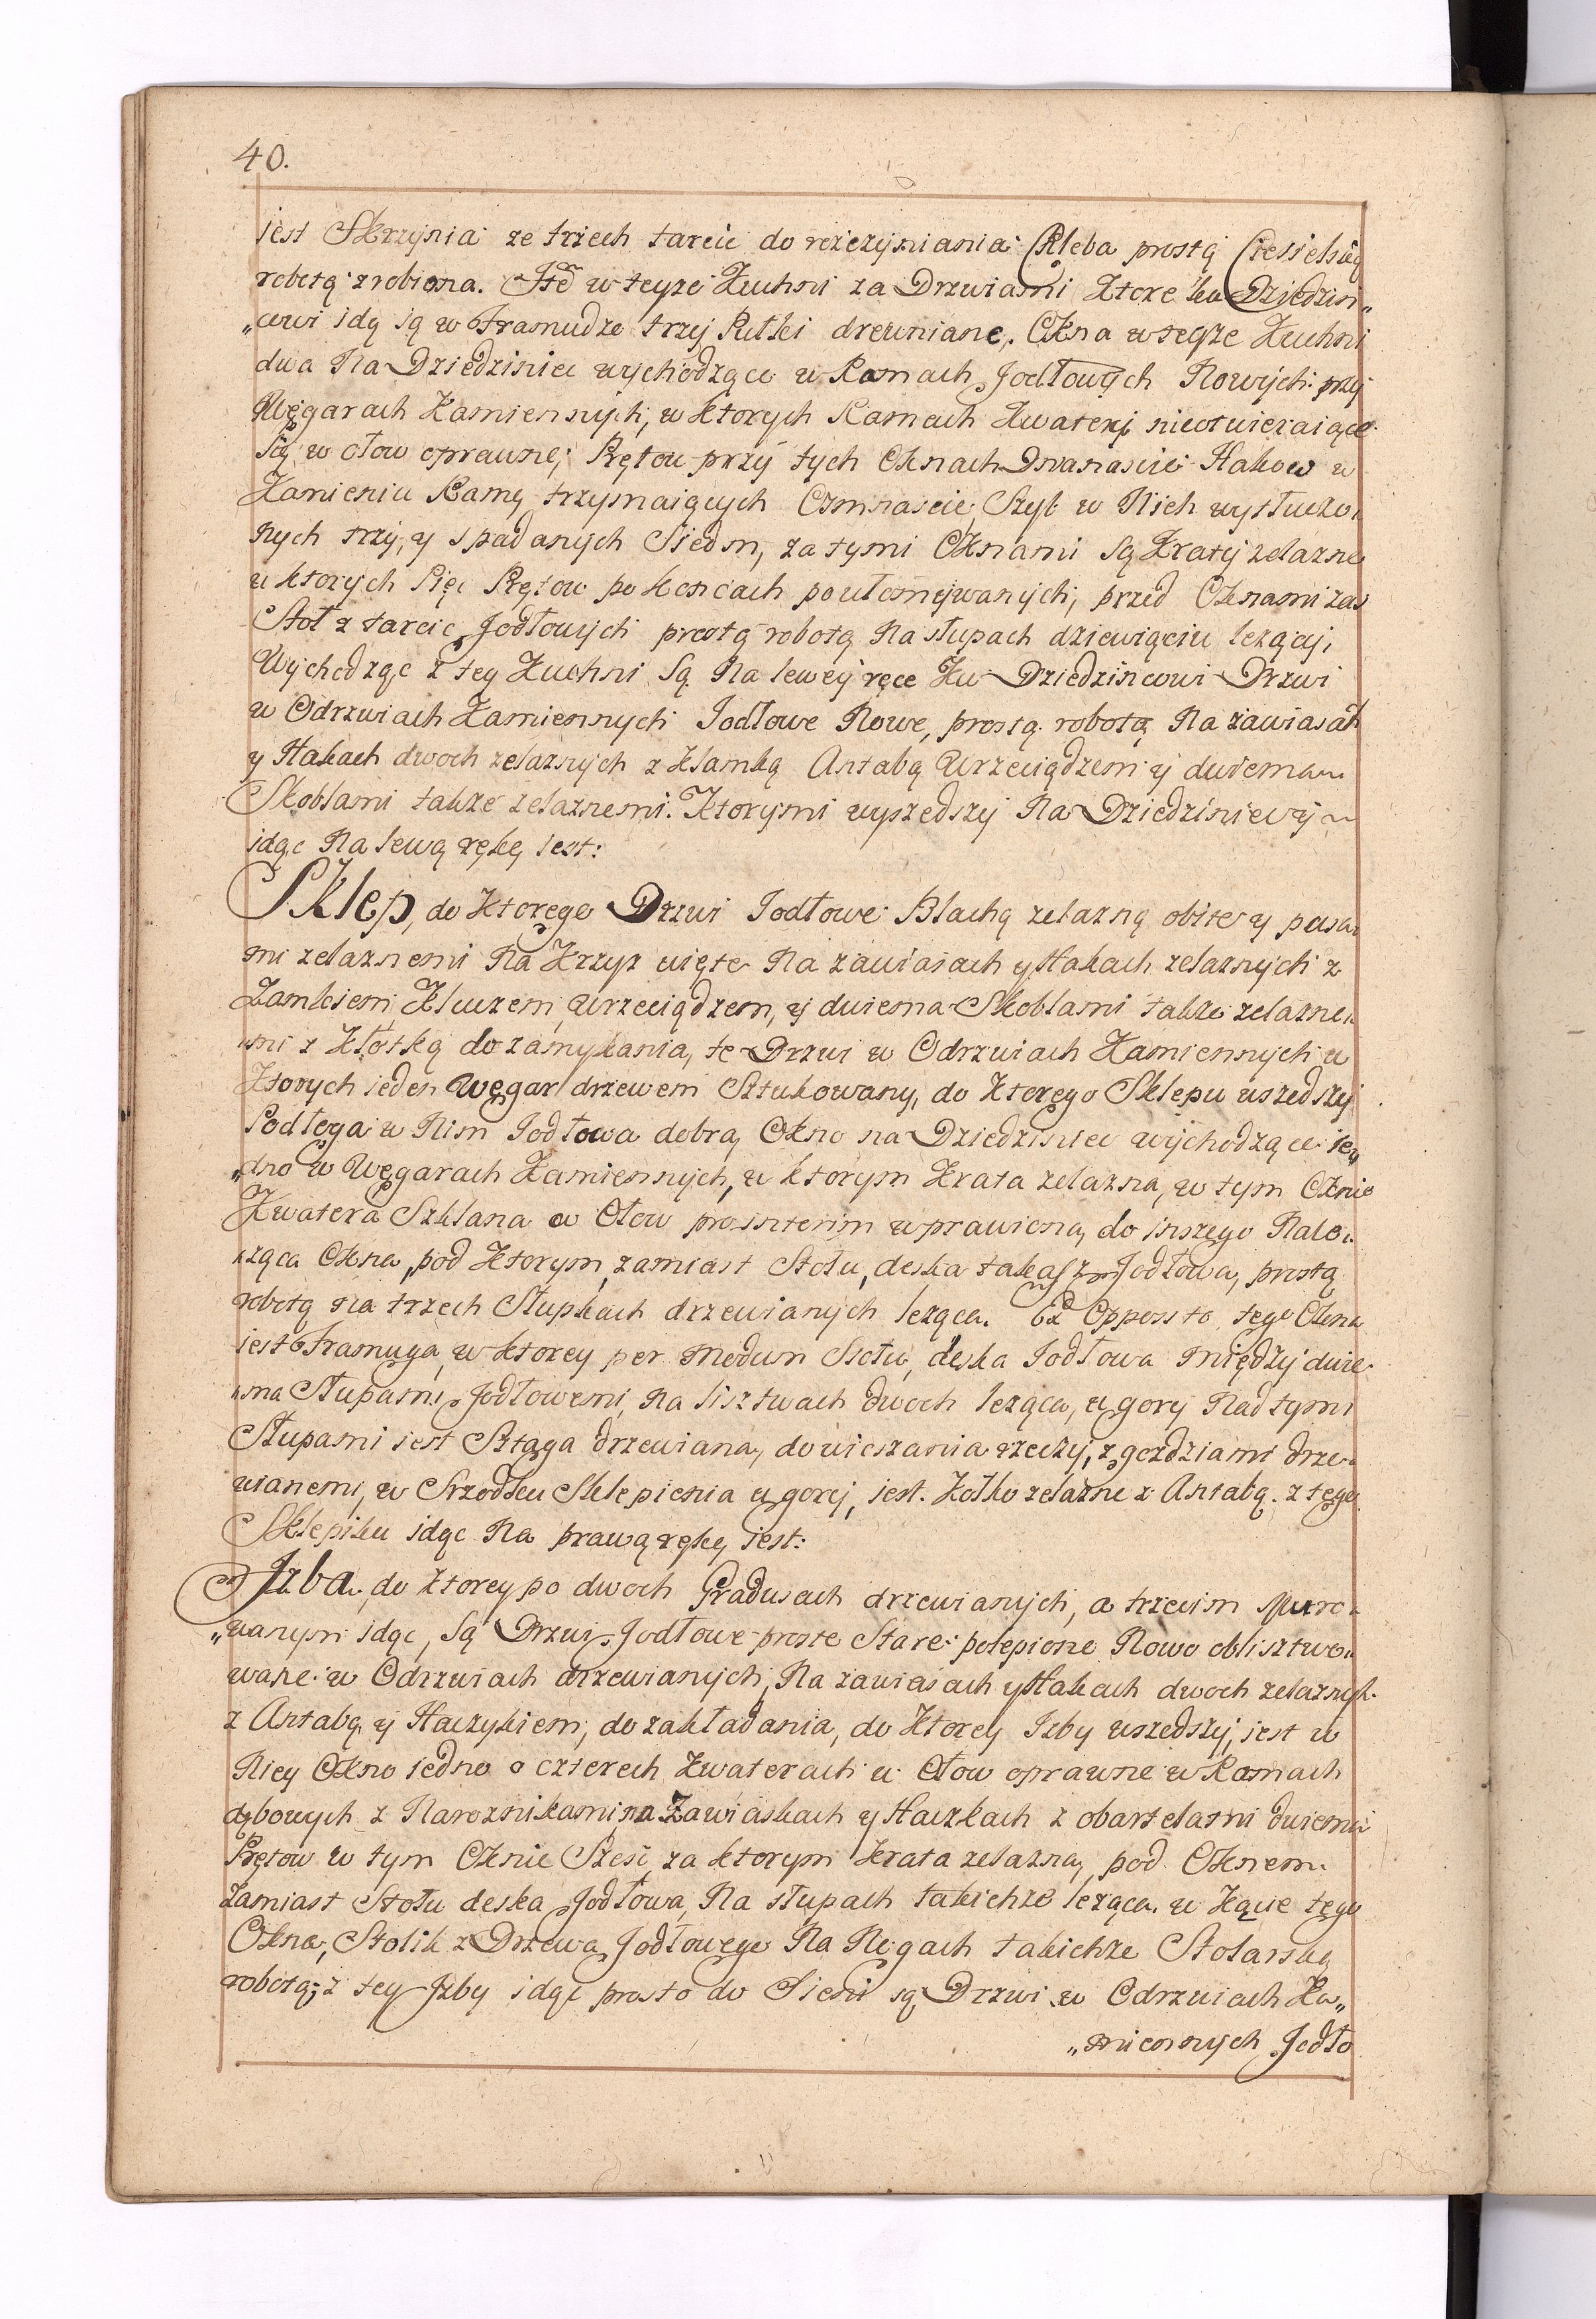 40.
jest Skrzynia ze trzech tarcic do rozczyniania Chleba prostą Ciesielską
robotą zrobiona. Itē w teyze Kuchni za Drzwiami Ktore ku Dziedzin„
„cowi idą są w Framudze trzy Pułki drewniane, Okna w teyze Kuchni
dwa Na Dziedziniec wychodzące w Ramach Jodłowych Nowych przy
Węgarach Kamiennych, w ktorych Ramach Kwatery nieotwieraiące
są w ołow oprawne; Prętow przy tych Oknach Dwanascie Hakow w
Kamieniu Ramy trzymaiących Osmnascie, Szyb w Nich wytłuczo„
nych trzy, y spadanych Siedm, za tymi Oknami są Kraty zelazne
u ktorych Pięc Prętow po koncach poułomywanych, przed Oknami zas
Stoł z tarcic Jodłowych prostą robotą Na słupach dziewięciu lezący,
Wychodząc z tey Kuchni są Na lewey ręce Ku Dziedzincowi Drzwi
w Odrzwiach Kamiennych Jodłowe Nowe, prostą robotą Na zawiasah
y Hakach dwoch zelaznych z klamką Antabą Wrzeciądzem y dwiema
Skoblami takze zelaznemi. Ktorymi wyszedszy Na Dziedziniec y
idąc Na lewą rękę iest:
Sklep, do Ktorego Drzwi Jodłowe Blachą zelazną obite y pasa„
mi zelaznemi Na Krzyz uięte Na zawiasach y Hakach zelaznych z
Zamkiem Kluczem, Wrzeciądzem, y dwiema Skoblami takze zelazne„
„mi z Kłotką do zamykania, te Drzwi w Odrzwiach Kamiennych u
Ktorych ieden Węgar drzewem Sztukowany, do Ktorego Sklepu wszedszy
Podłoga w Nim Jodłowa dobra, Okno na Dziedziniec wychodzące ie„
„dno w Węgarach Kamiennych, w ktorym Krata zelazna, w tym Oknie
Kwatera Szklana w Ołow pro interim wprawiona, do inszego Nale„
„ząca Okna, pod Ktorym, zamiast Stołu, deska takasz Jodłowa, prostą
robotą na trzech Słupkach drzewianych leząca. Ex Opposito tego Okna
iest Framuga, w ktorey per modum Stołu, deska Jodłowa między dwie„
„ma Słupami Jodłowemi, Na lisztwach dwoch leząca, u gory Nad tymi
Słupami iest Sztaga drzewiana, do wieszania rzeczy, z gozdziami drze„
wianemi, w Srzodku Sklepienia u gory, iest Kołko zelazne z Antabą. z tego
Sklepiku idąc Na prawą rękę iest:
Izba, do Ktorey po dwoch Gradusach drzewianych, a trzecim Muro„
„wanym idąc, są Drzwi Jodłowe proste Stare polepione Nowo oblisztwo„
wane w Odrzwiach drzewianych, Na zawiasach y Hakach dwoch zelaznych
z Antabą y Haczykiem, do zakładania, do Ktorey Izby wszedszy, iest w
Niey Okno iedno o czterech Kwaterach w Ołow oprawne w Ramach
dębowych z Naroznikami, na Zawiaskach y Haczkach z obartelami dwiema
Prętow w tym Oknie Szesc, za ktorym Krata zelazna, pod Oknem
Zamiast Stołu deska Jodłowa, Na słupach takichze leząca. w Kącie tego
Okna, Stolik z Drzewa Jodłowego Na Nogach takichze Stolarską
robotą; z tey Izby idąc prosto do Sieni są Drzwi w Odrzwiach Ka„
„miennych Jodło